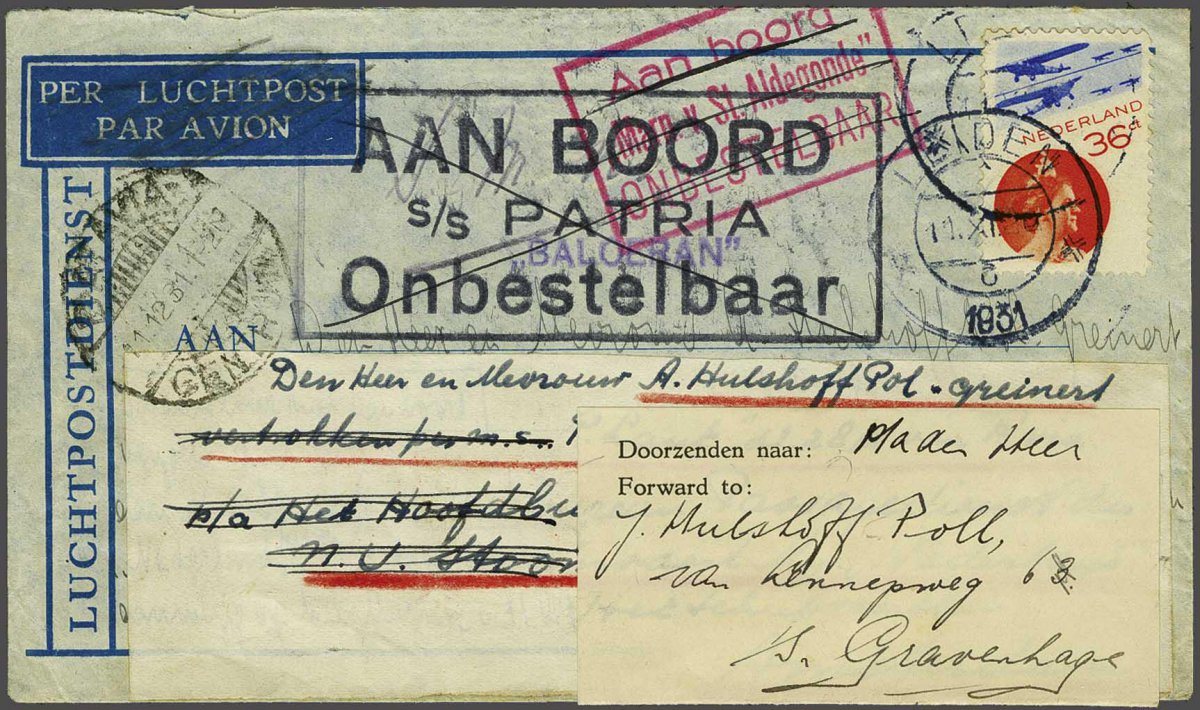 PER LUCHTPOST
PAR AVION
LUCHTPOSTDIENST
Aan boord
Marn. v. St. Aldegonde"
ONBESTELBAAR
AAN BOORD
s/s PATRIA
„BALOERAN"
Onbestelbaar
NEDERLAND
36 ct
LEIDEN
1931
AAN
Den Heer en Mevrouw A. Hulshoff Pol - Greinert
vertrokken per m.s.
p/a Het Hoofdbu
N.V. Stoom
Doorzenden naar: p/a den Heer
Forward to:
J. Hulshoff Poll,
van Lennepweg 63
's Gravenhage